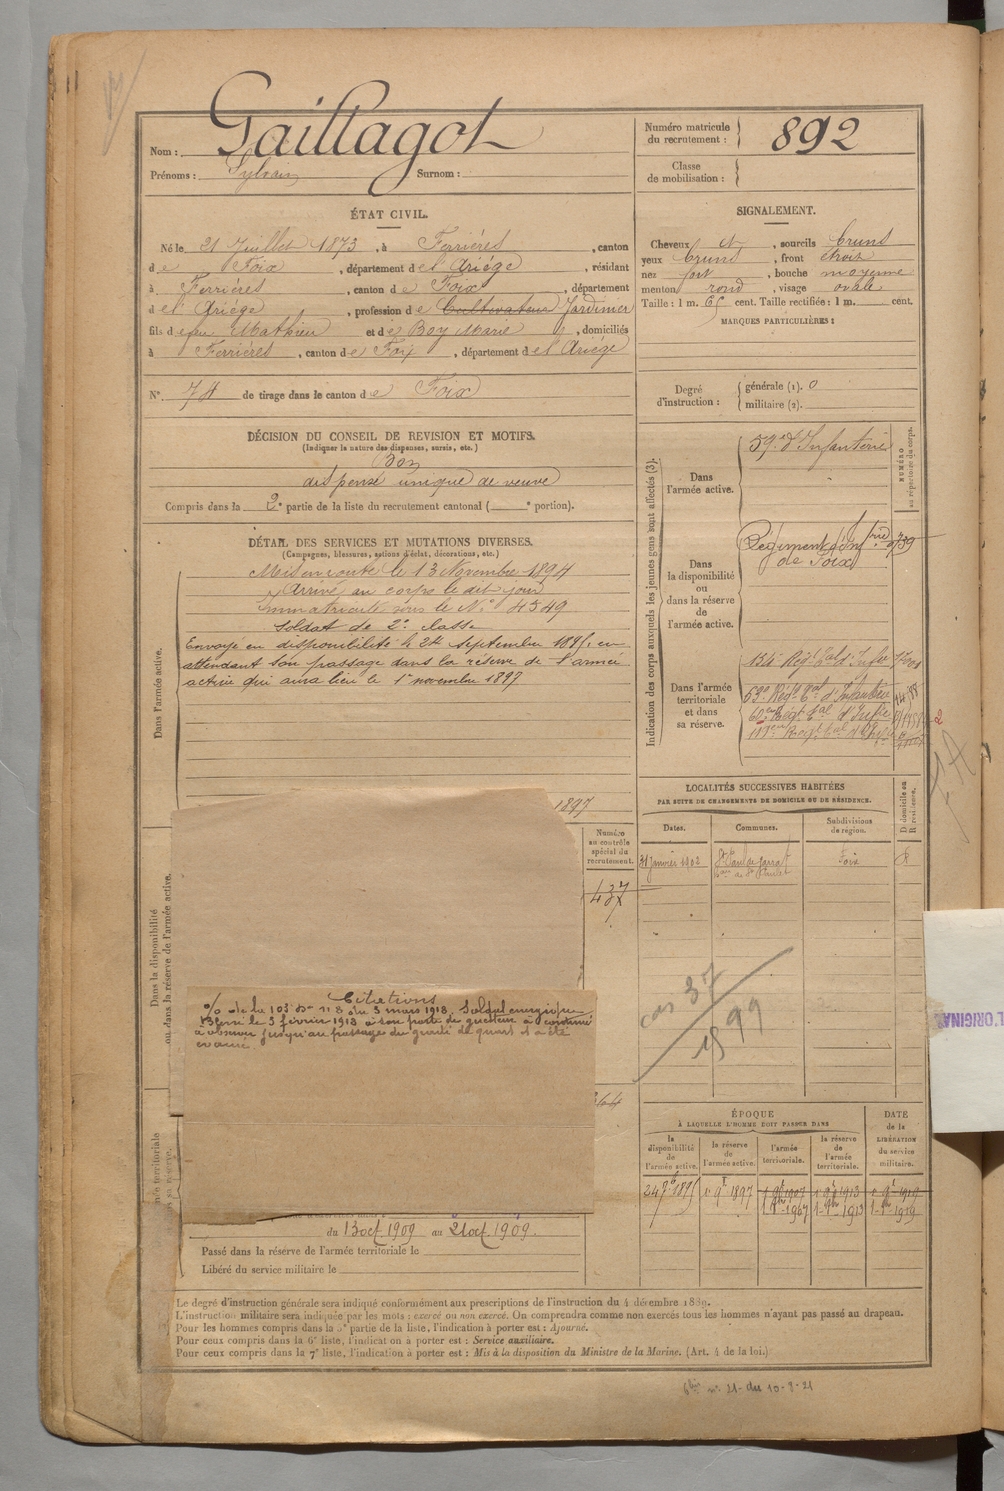 Nom : Gaillagot
Prénoms : Sylvain Surnom :
Numéro matricule du recrutement : 892
Classe de mobilisation :
ÉTAT CIVIL.
Né le 21 Juillet 1873, à Ferrières, canton
de Foix, département de l'Ariége, résidant
à Ferrières, canton de Foix, département
de l'Ariége, profession de Cultivateur Jardinier
fils de feu Mathieu et de Boy Marie, domiciliés
à Ferriéres, canton de Foix, département de l'Ariége
N° 74 de tirage dans le canton de Foix
SIGNALEMENT.
Cheveux et, sourcils bruns
yeux bruns, front étroit
nez fort, bouche moyenne
menton rond, visage ovale
Taille : 1 m. 65 cent. Taille rectifiée : 1 m. cent.
MARQUES PARTICULIÈRES :
Degré d'instruction :
générale (1). 0
militaire (2).
DÉCISION DU CONSEIL DE REVISION ET MOTIFS.
(Indiquer la nature des dispenses, sursis, etc.)
Bon
dispensé unique de veuve
Compris dans la 2e partie de la liste du recrutement cantonal ( e portion).
DÉTAIL DES SERVICES ET MUTATIONS DIVERSES.
(Campagnes, blessures, actions d'éclat, décorations, etc.)
Dans l'armée active.
Mis en route le 13 Novembre 1894
Arrivé au corps le dit jour
Immatriculé sous le N° 4549
Soldat de 2e classe
Envoyé en disponibilité le 24 septembre 1895 en
attendant son passage dans la réserve de l'armée
active qui aura lieu le 1er novembre 1897
1897
Dans la disponibilité ou dans la réserve de l'armée active.
Numéro au contrôle spécial du recrutement.
437
Citations
du 3 mars 1918. Soldat
le 3 février 1918 à son poste de
364
du 13 oct 1909 au 21 oct 1909.
Passé dans la réserve de l'armée territoriale le
Libéré du service militaire le
Indication des corps auxquels les jeunes gens sont affectés (3).
NUMÉRO au répertoire du corps.
Dans l'armée active.
59e d'Infanterie
Dans la disponibilité ou dans la réserve de l'armée active.
Régiment d'Infrie
de Foix
Dans l'armée territoriale et dans sa réserve.
59e Régt tal d'Infanterie
LOCALITÉS SUCCESSIVES HABITÉES
PAR SUITE DE CHANGEMENTS DE DOMICILE OU DE RÉSIDENCE.
Dates. Communes. Subdivisions de région. D domicile ou R résidence.
31 Janvier 1902 St Paul de Jarrat Foix R
cas 37
1899
ÉPOQUE
À LAQUELLE L'HOMME DOIT PASSER DANS
la disponibilité de l'armée active. la réserve de l'armée active. l'armée territoriale. la réserve de l'armée territoriale.
DATE de la LIBÉRATION du service militaire.
24 7bre 1895 1er 9bre 1897 1 9bre 1907 1er 9bre 1913 1er 9bre 1919
L'ORIGINAL
Le degré d'instruction générale sera indiqué conformément aux prescriptions de l'instruction du 4 décembre 1889.
L'instruction militaire sera indiquée par les mots : exercé ou non exercé. On comprendra comme non exercés tous les hommes n'ayant pas passé au drapeau.
Pour les hommes compris dans la 5e partie de la liste, l'indication à porter est : Ajourné.
Pour ceux compris dans la 6e liste, l'indication à porter est : Service auxiliaire.
Pour ceux compris dans la 7e liste, l'indication à porter est : Mis à la disposition du Ministre de la Marine. (Art. 4 de la loi.)